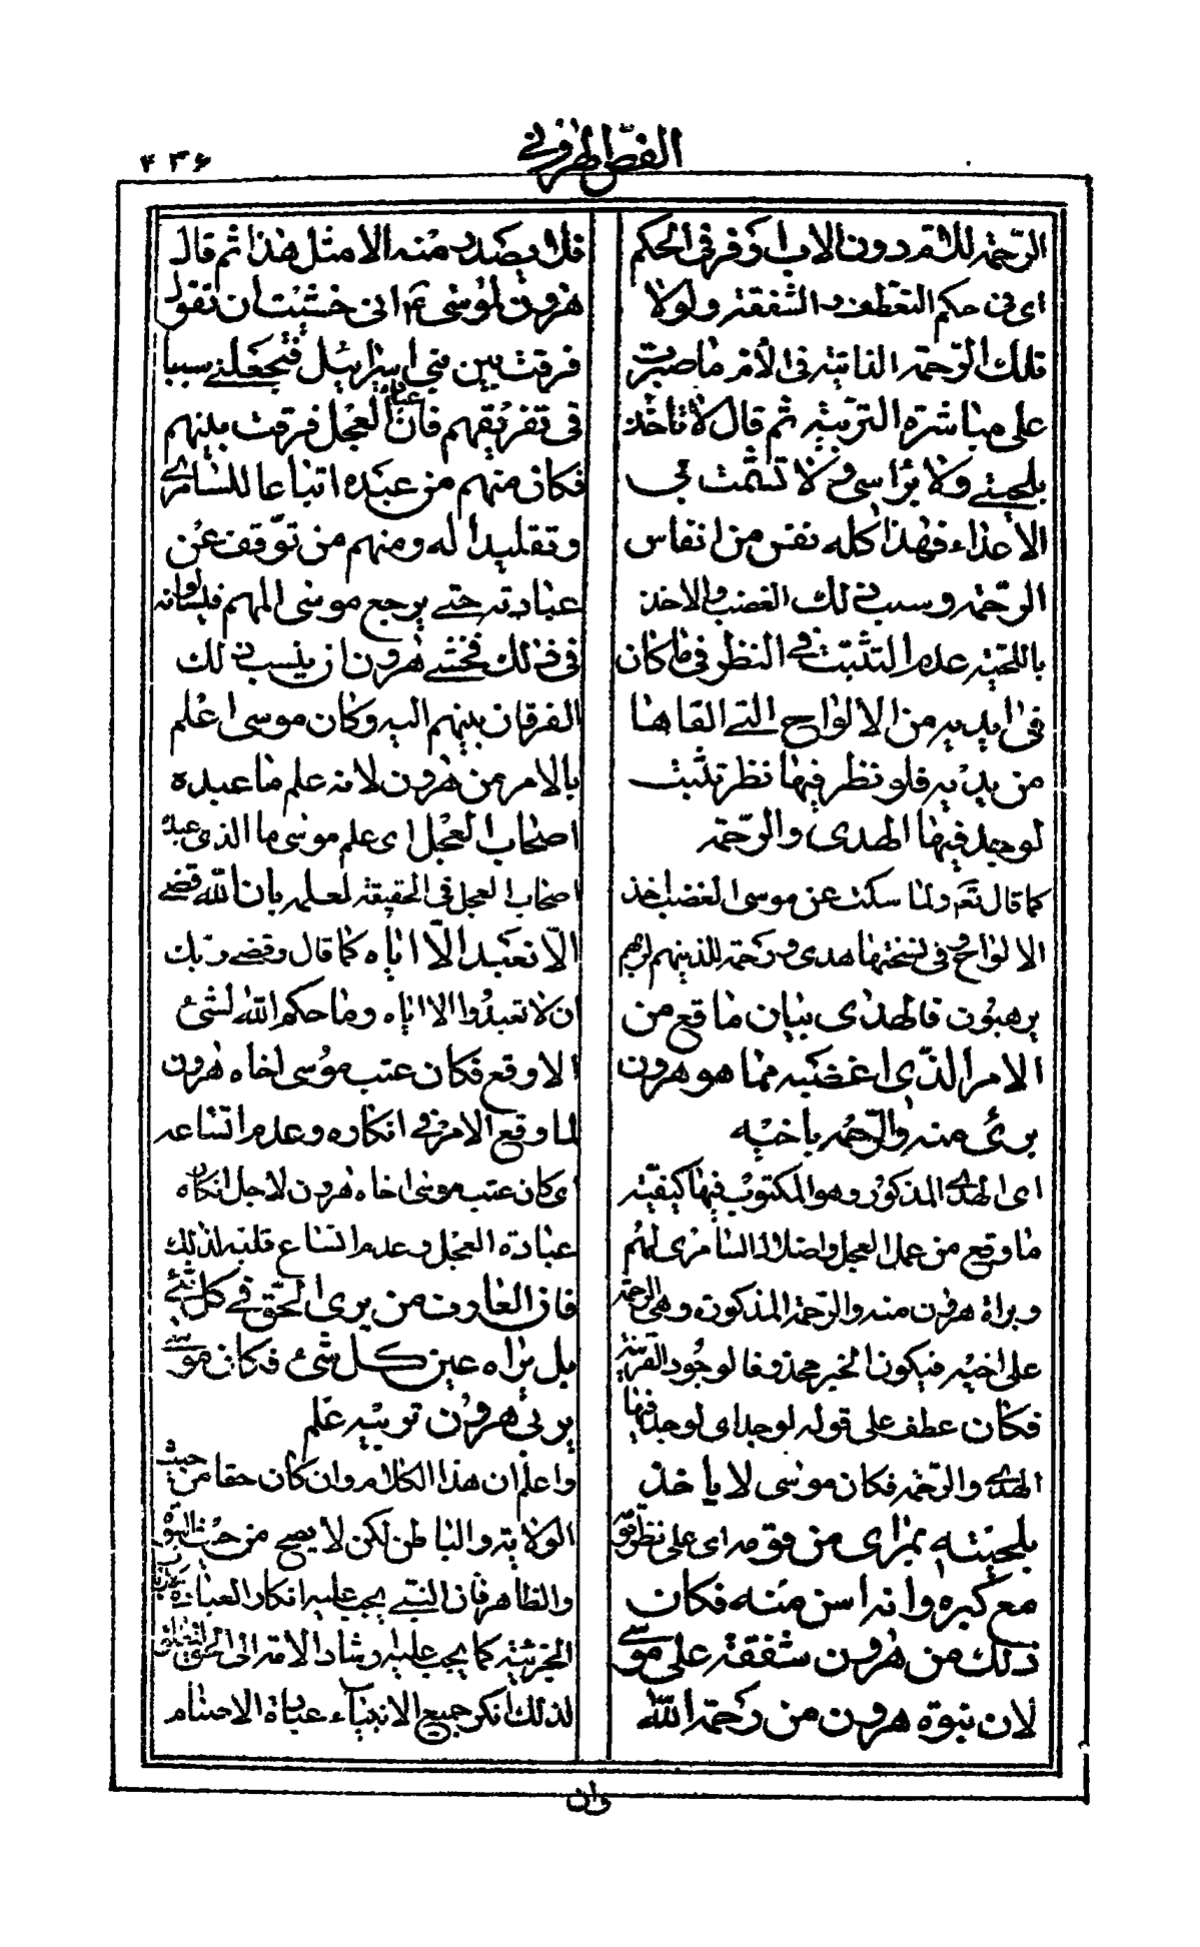 الفصّ الهروني
٤٣٦
الرّحمة للامّ دون الاب اوفر فى الحكم
اى فى حكم التعطف و الشفقة ولولا
تلك الرّحمة الذاتية فى الأم ما صبرت
على مباشرة التربية ثم قال لا تأخذ
بلحيتى ولا برأسى و لا تشمت بى
الأعداء فهذا كله نفس من انفاس
الرّحمة وسبب ذلك الغضب والاخذ
باللحية عدم التثبّت فى النظر فى ما كان
فى ايديه من الالواح التى القاها
من يديه فلو نظر فيها نظر تثبت
لوجد فيها الهدى والرّحمة
كما قال تعم ولما سكت عن موسى الغضب اخذ
الالواح و فى نسختها هدى و رحمة للذينهم لربهم
يرهبون فالهدى بيان ما وقع من
الامر الذى اغضبه مما هو هرون
برئ منه والرّحمة باخيه
اى الهدى المذكور وهو المكتوب فيها كيفيّته
ما وقع من عمل العجل واضلال السامرى لهم
وبراة هرون منه والرّحمة المذكورة وهى الرحمة
على اخيه فيكون الخبر محذوفا لوجود القرينة
فكان عطف على قوله لوجد اى لوجد فيها
الهدى والرّحمة فكان موسى لا ياخذ
بلحيته بمراى من قومه اى على نظر قومه
مع كبره وانه اسن منه فكان
ذلك من هرون شفقة على موسى
لان نبوة هرون من رحمة الله
فلا يصدر منه الا مثل هذا ثم قال
هرون لموسى ع انى خشيت ان تقول
فرقت بين بنى اسرائيل فتجعلنى سببا
فى تفريقهم فان عبادة العجل فرقت بينهم
فكان منهم من عبده اتباعا للسامرى
وتقليدا له ومنهم من توّقف عن
عبادته حتى يرجع موسى اليهم فيسألونه
فى ذلك فخشى هرون ان ينسب ذلك
الفرقان بينهم اليه وكان موسى اعلم
بالامر من هرون لانه علم ما عبده
اصحاب العجل اى علم موسى ما الذى عبده
اصحاب العجل فى الحقيقة لعلمه بان الله قضى
الّا نعبد الّا اياه كما قال وقضى ربّك
ان لا تعبدوا الا اياه وما حكم الله لشئ
الا وقع فكان عتب موسى اخاه هرون
لما وقع الامر فى انكاره وعدم اتساعه
اى كان عتب موسى اخاه هرون لاجل انكاره
عبادة العجل وعدم اتساع قلبه لذلك
فان العارف من يرى الحق فى كل شئ
بل يراه عين كل شئ فكان موسى
يربى هرون تربية علم
واعلم ان هذا الكلام وان كان حقا من حيث
الولاية والباطن لكن لا يصح من حيث النبوة
والظاهر فان النبى يجب عليه انكار العبادة
الجزئية كما يجب عليه ارشاد الامة الى الحق المطلق
لذلك انكر جميع الانبياء عبادة الاصنام
وان